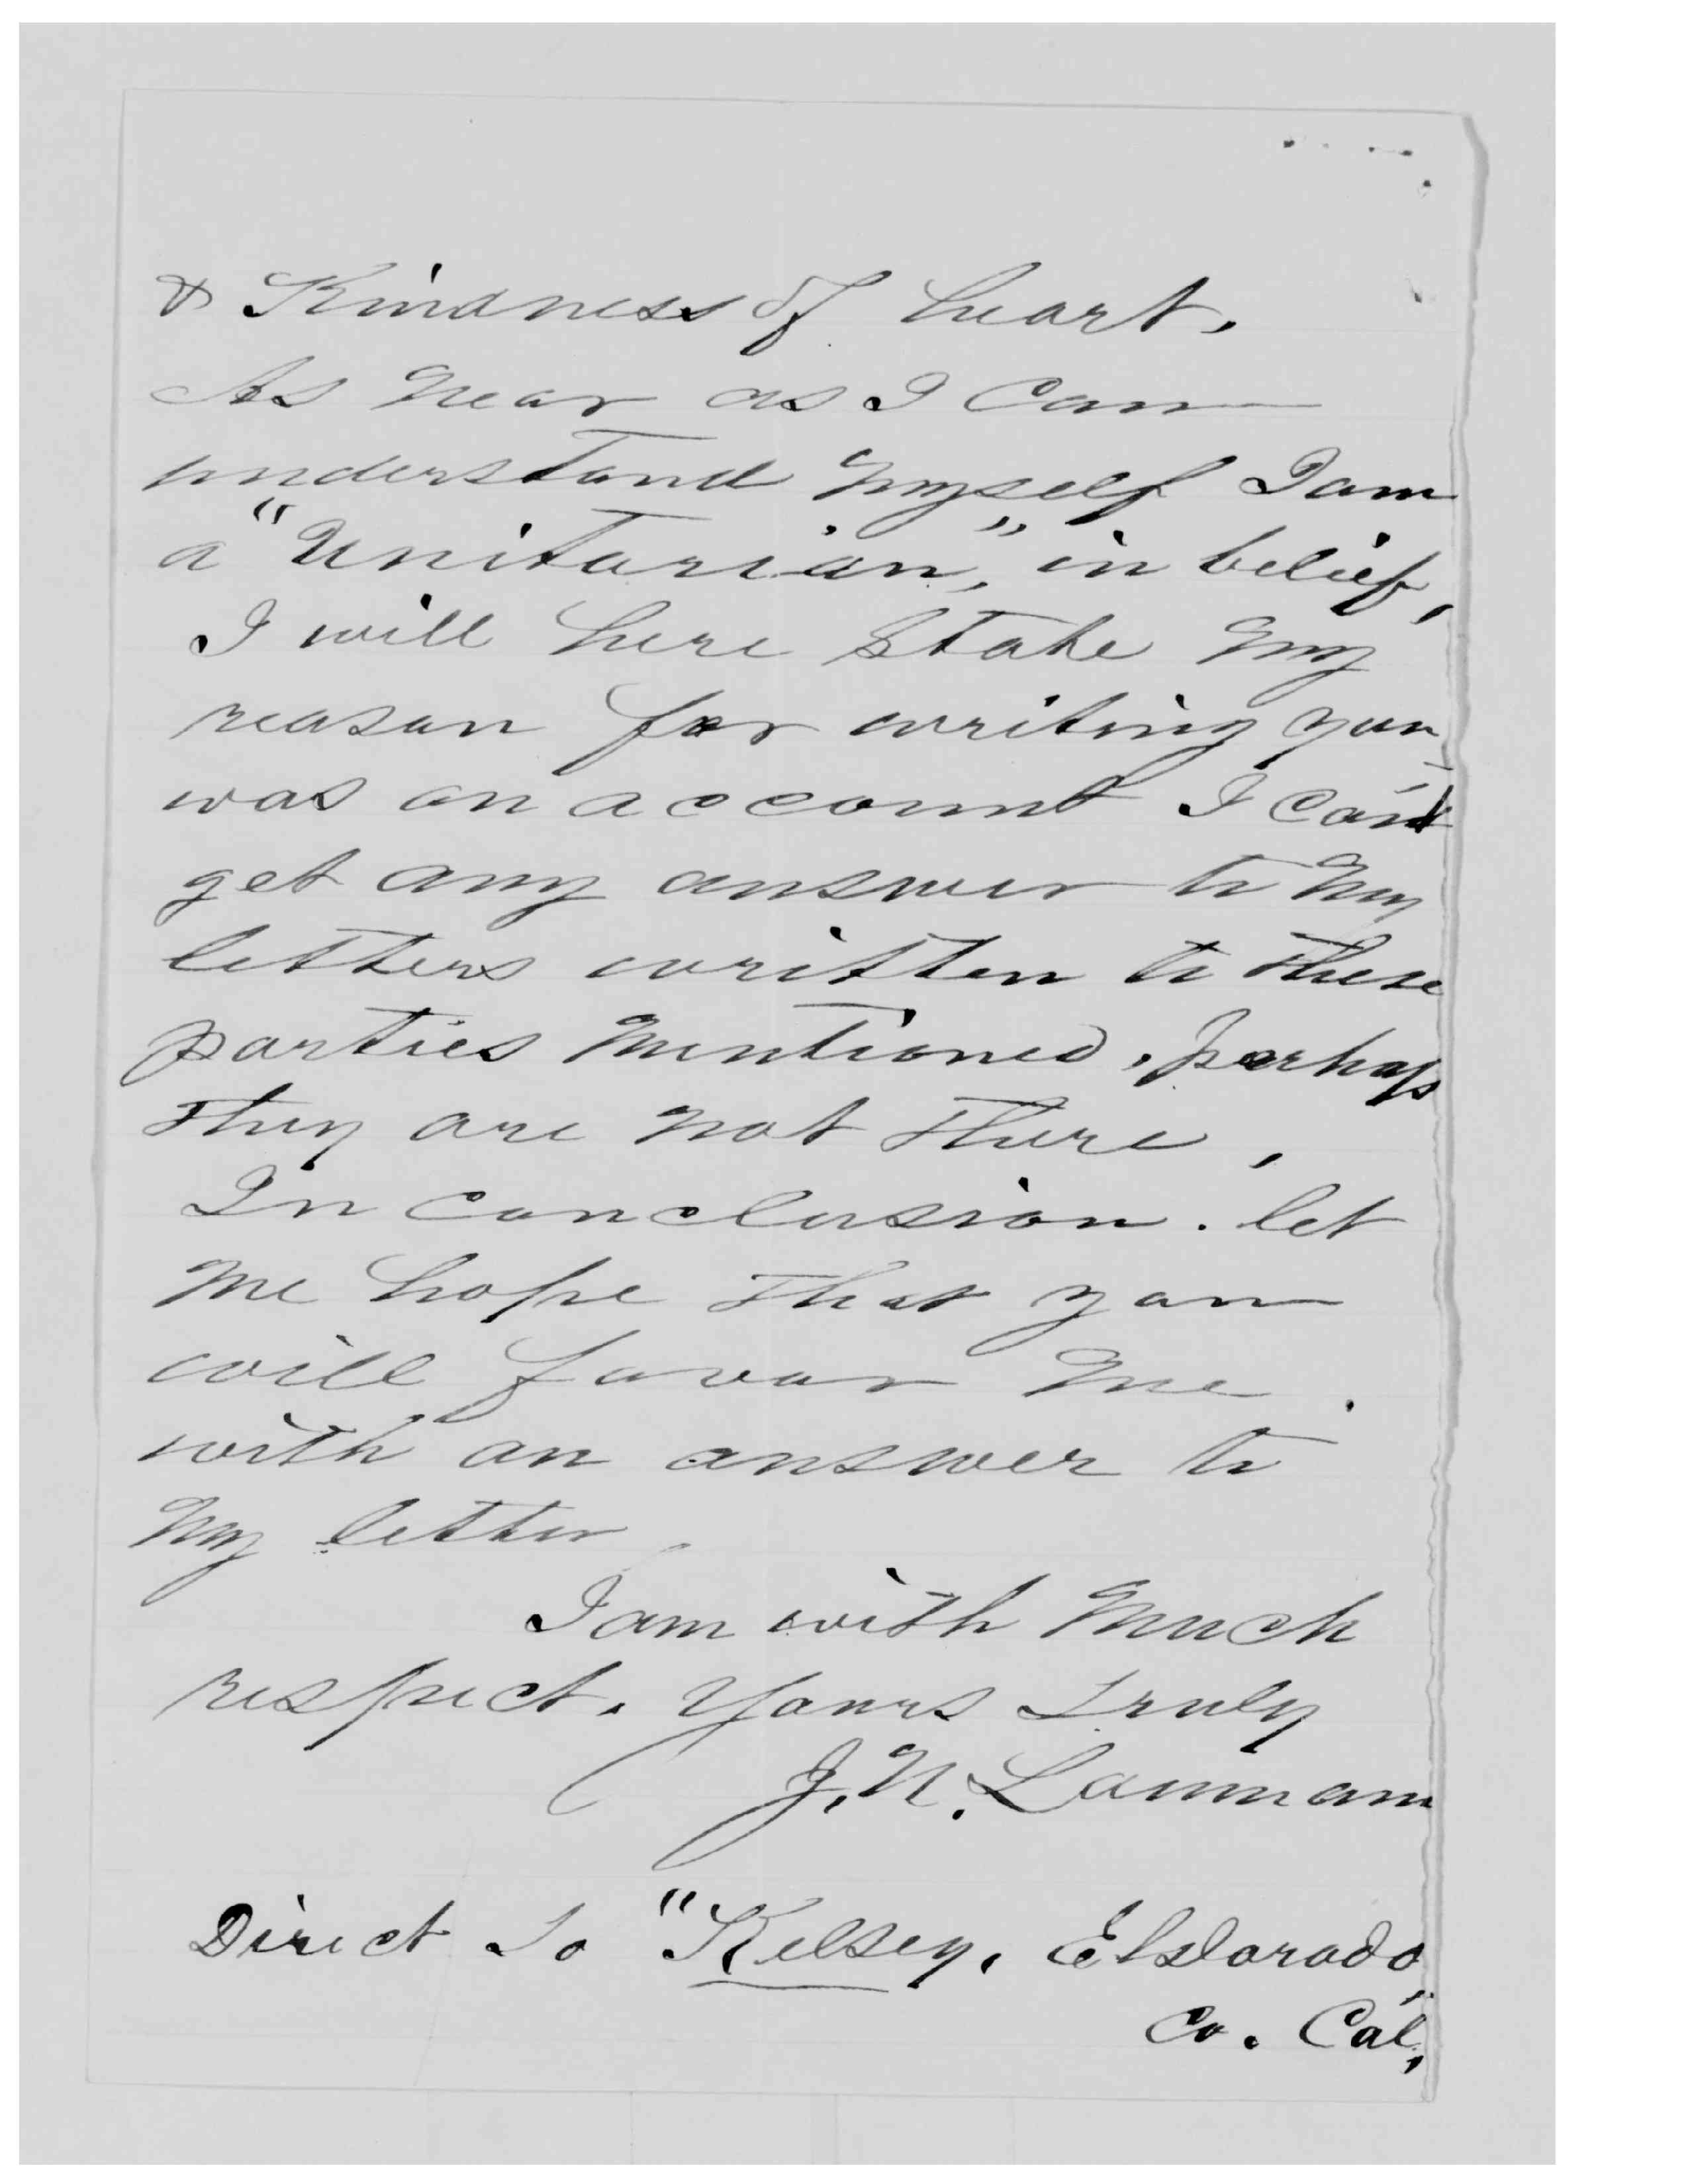 & Kindness of heart.
As near as I can
understand myself I am
a "Unitarian," in belief,
I will here State my
reason for writing you
was on account I can't
get any answer to my
letters written to these
parties mentioned, perhaps
they are not there,
In conclusion. let
me hope that you
will favor me.
with an answer to
my letter,
I am with much
respect. Yours truly
J. N. Lanman
Direct to "Kelsey, Eldorado,
Co. Cal,"